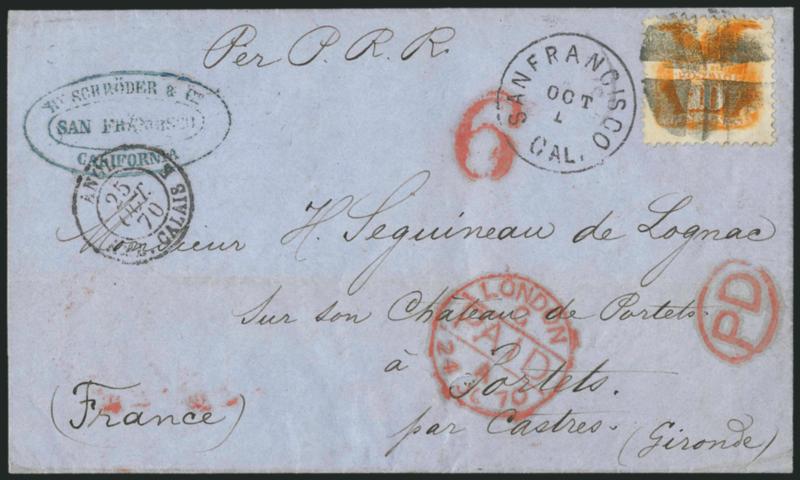 Per P. R. R.
Hy SCHRÖDER & Co
SAN FRANCISCO
CALIFORNIA
SAN FRANCISCO
OCT
CAL.
6
10
ANGL.
25
OCT.
70
CALAIS
Monsieur H. Seguineau de Lognac
Sur son Château de Portets.
à Portets.
par Castres. (Gironde)
(France)
LONDON
PAID
24
70
PD